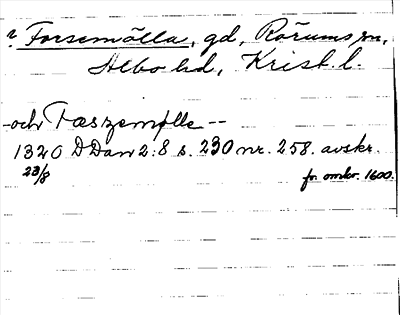 ? Forsemölla, gd, Rörums sn,
Albo hd, Krist. l.
-och Faszemølle--
1320 DDan 2:8 s. 230 nr. 258. avskr.
23/8 fr. omkr. 1600.